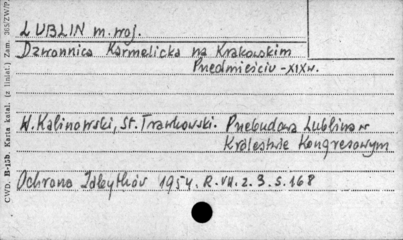 LUBLIN m. woj.
Dzwonnica Karmelicka na Krakowskim
Przedmieściu - XIX w.
W. Kalinowski, St. Trawkowski. Przebudowa Lublina w
Królestwie Kongresowym
Ochrona Zabytków 1954. R. VII. z. 3. s. 168
CWD. B-12b. Karta katal. (z liniat.) Zam. 305/ZW/P